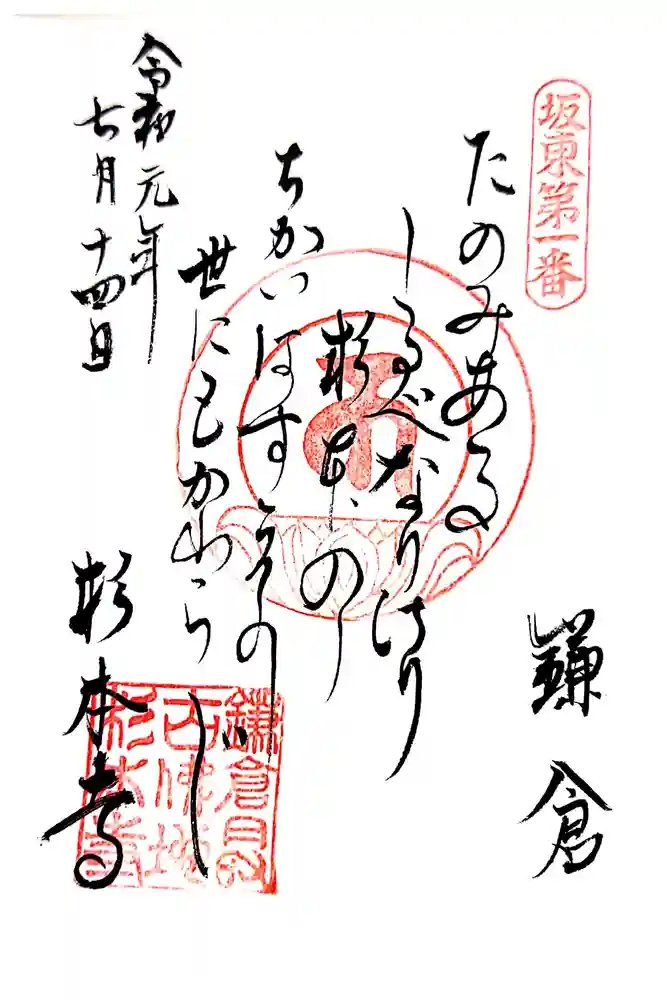 坂東第一番
鎌倉
たのみある
しるべなりけり
杉本の
ちかいはすゑの
世にもかわらじ
令和元年
七月十四日
杉本寺
鎌倉最
古佛地
杉本寺